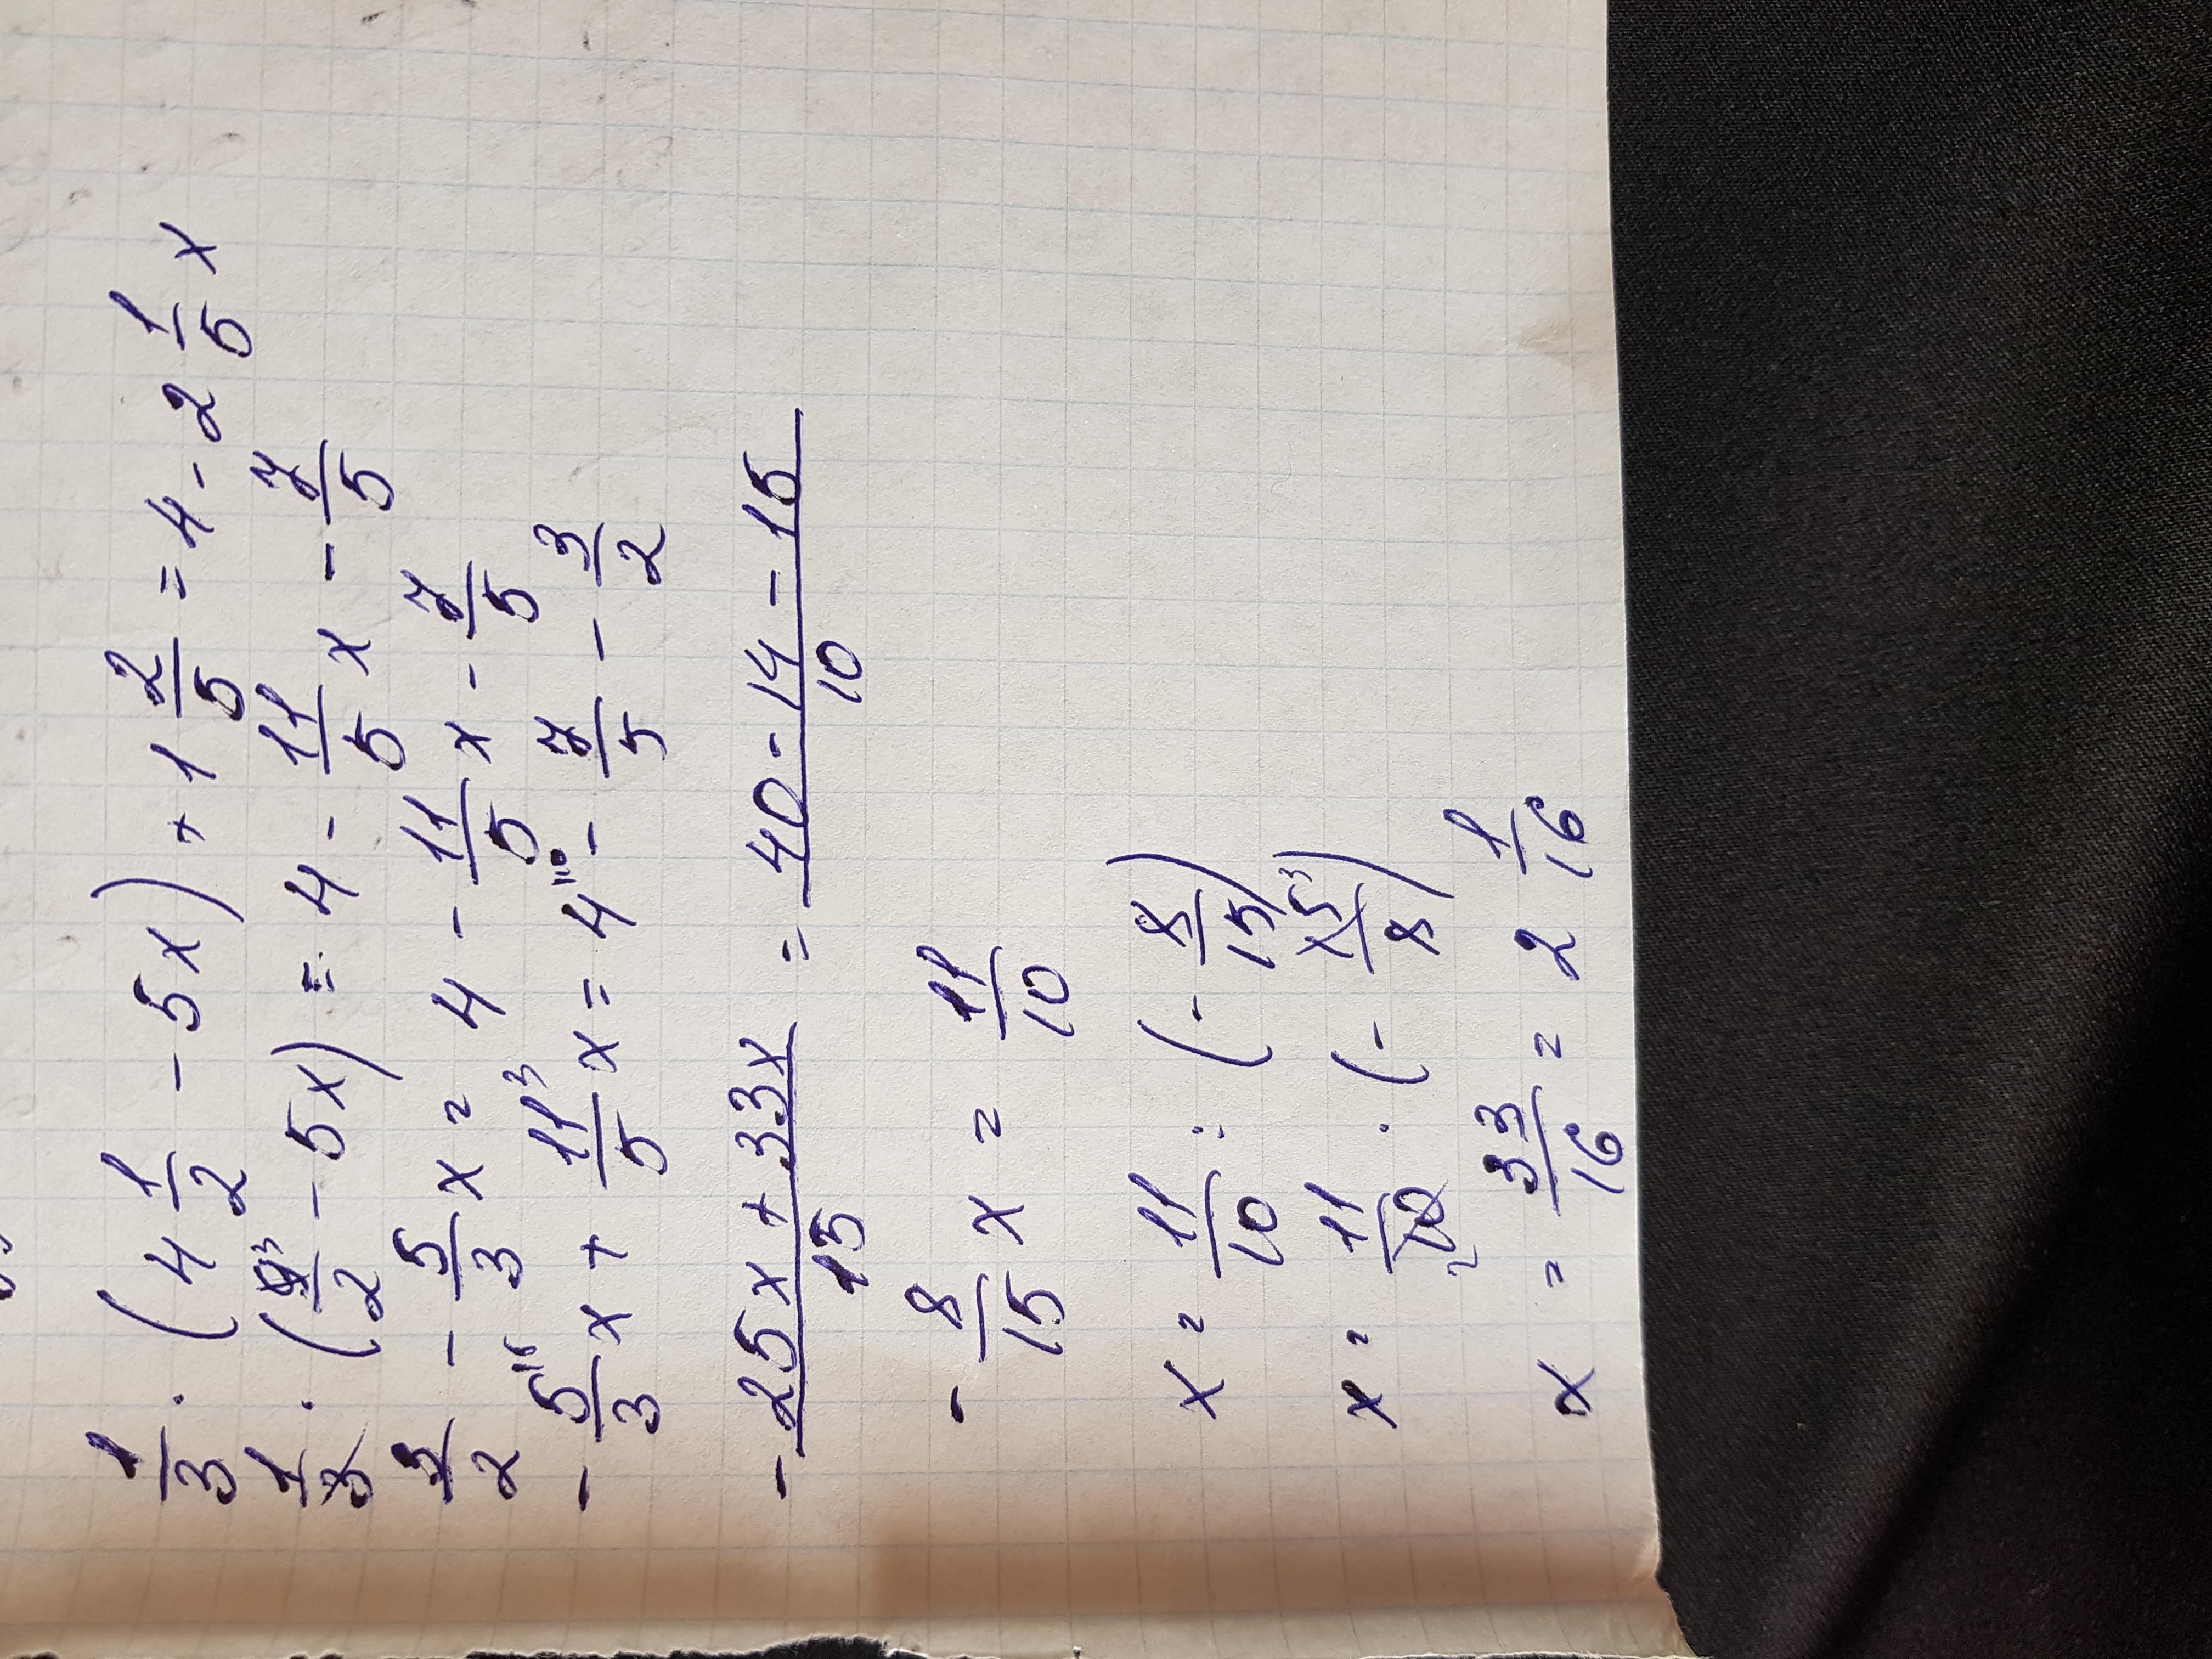 1/3 · (4 1/2 - 5x) + 1 2/5 = 4 - 2 1/5 x
1/3 · (9³/2 - 5x) = 4 - 11/5 x - 7/5
3/2 - 5/3 x = 4 - 11/5 x - 7/5
- 5/3 x + 11/5 x = 4 - 7/5 - 3/2
- 25x + 33x / 15 = 40 - 14 - 15 / 10
- 8/15 x = 11/10
x = 11/10 : (- 8/15)
x = 11/10 · (- 15/8)
x = 33/16 = 2 1/16